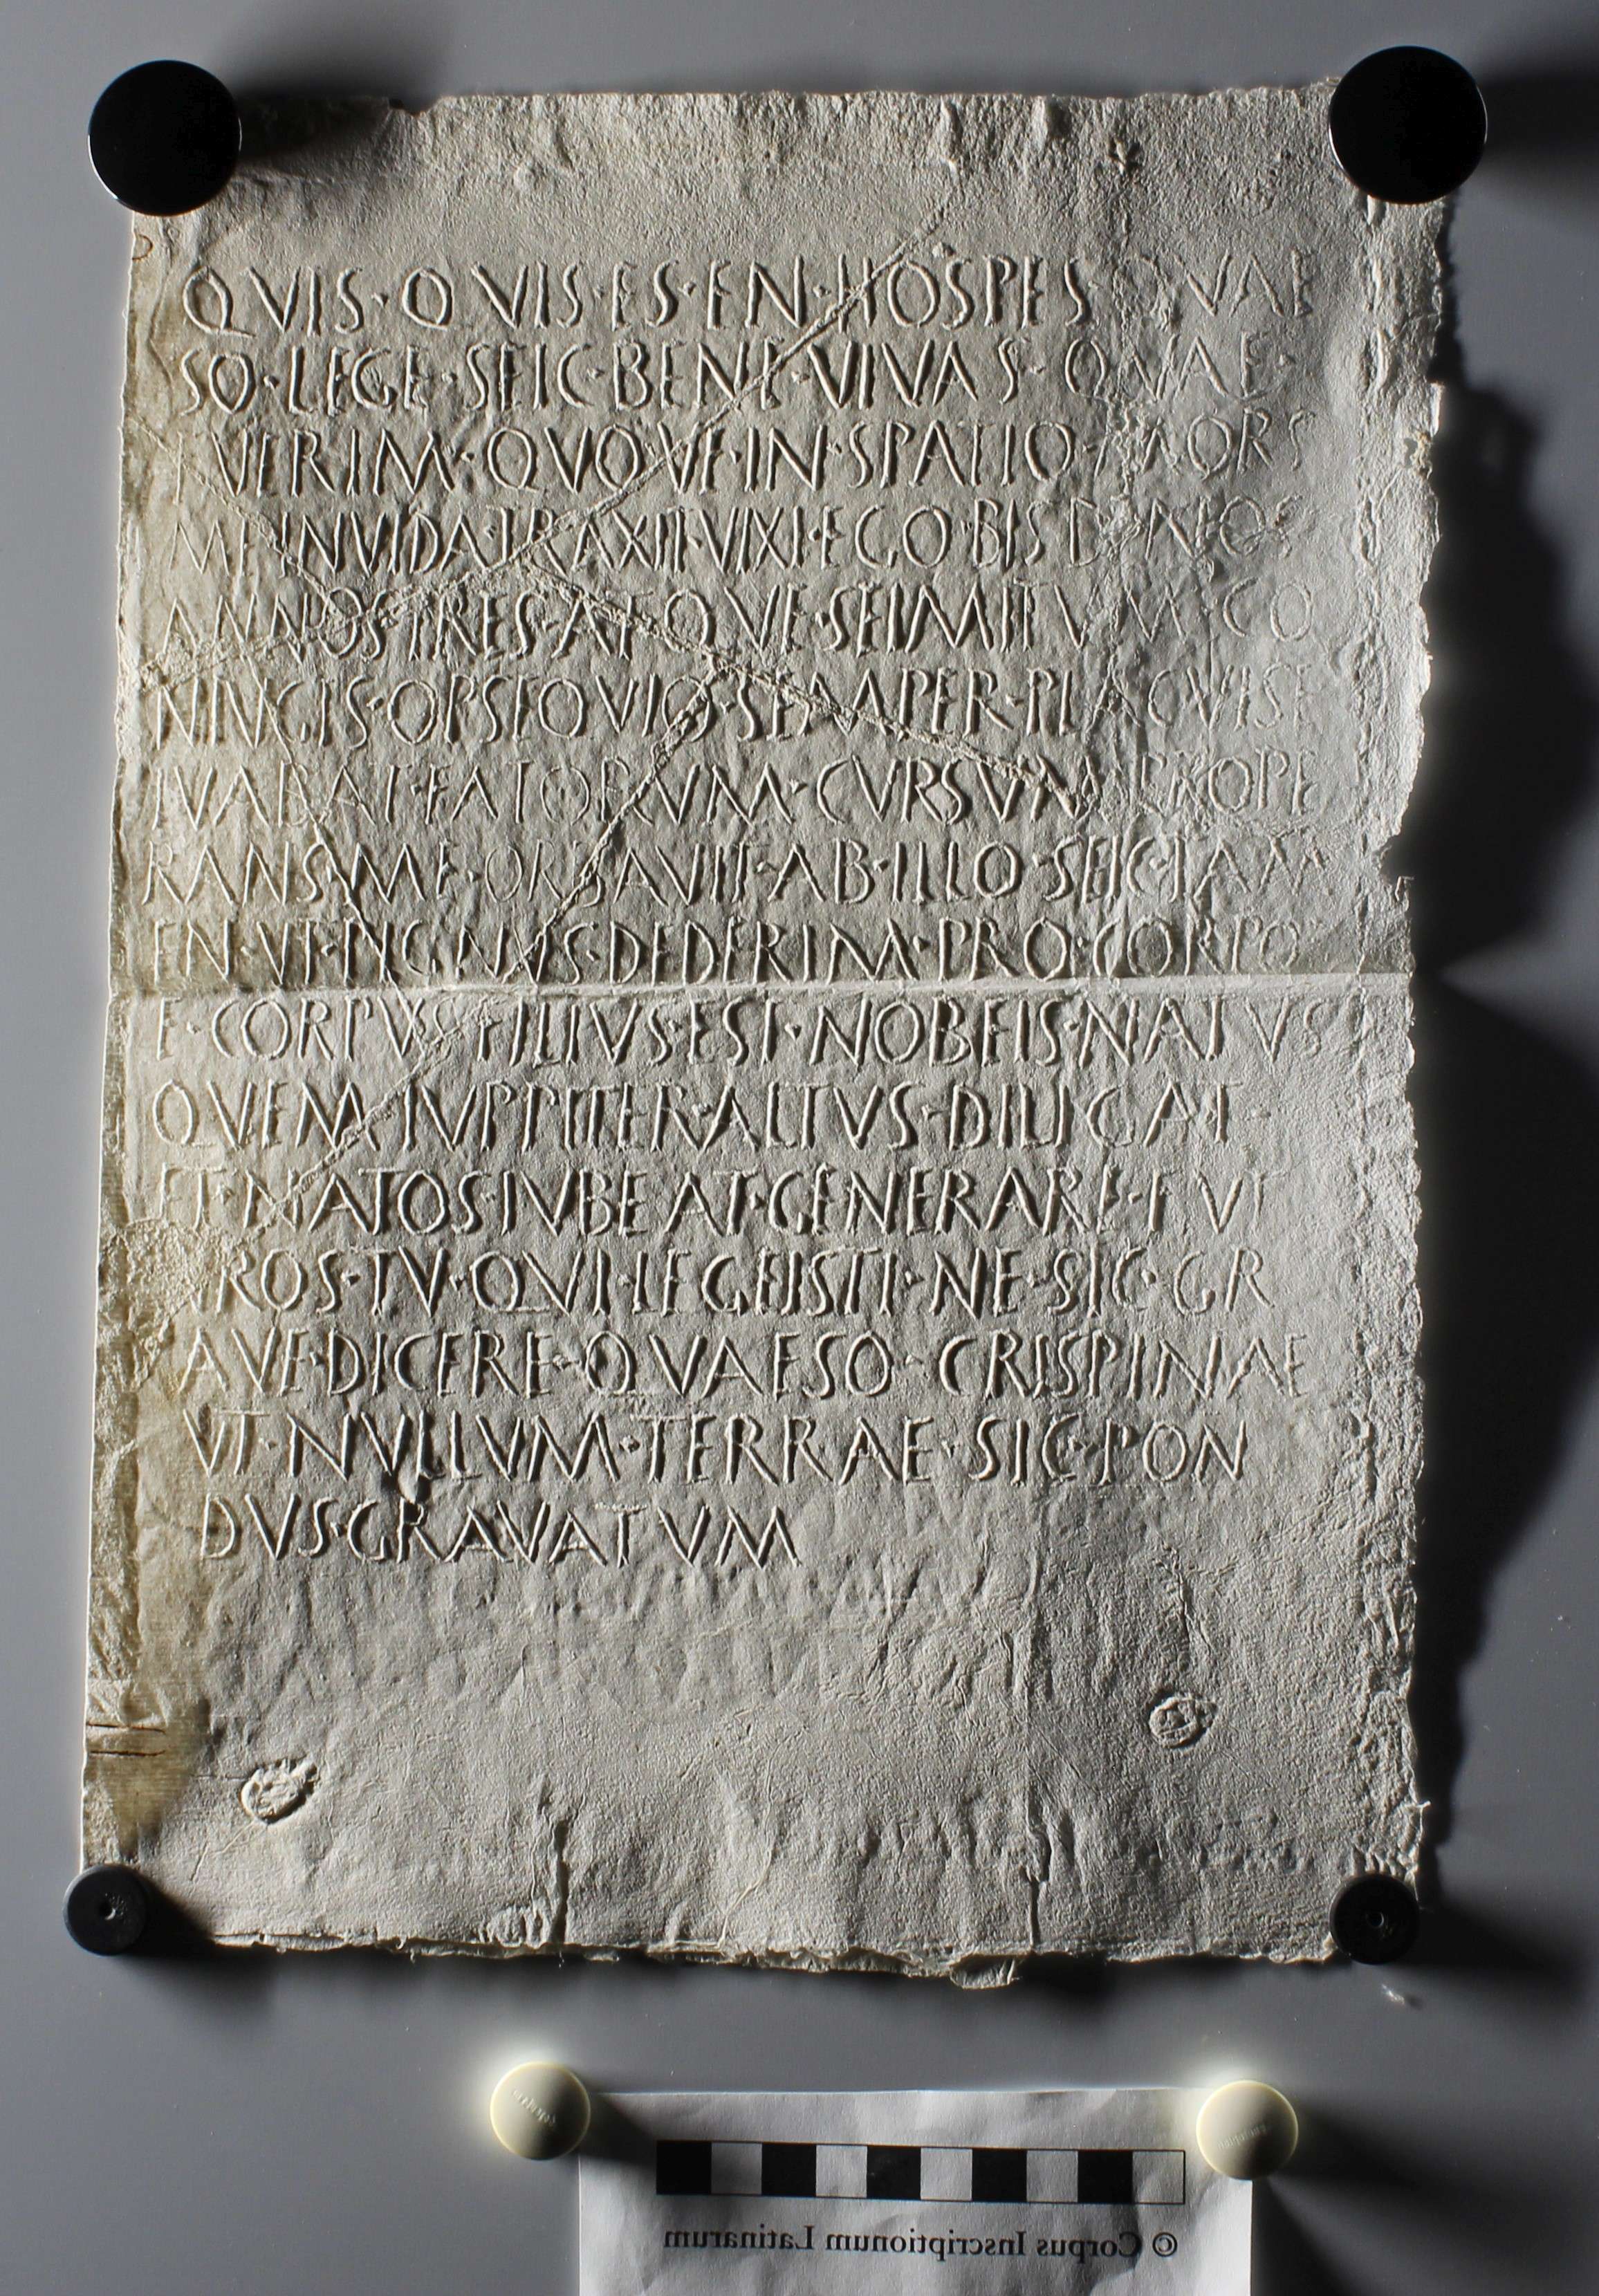 QVIS·QVIS·ES·EN·HOSPES QVAE
SO·LEGE·SEIC·BENE·VIVAS·QVAE·
FVERIM·QVOVE·IN·SPATIO·MORS
ME·INVIDA·TRAXIT·VIXI·EGO·BIS DENOS
ANNOS·TRES·ATQVE·SEIMITVM·CO
NIVGIS·OPSEQVIO·SEMPER·PLACVISE
IVABAT·FATORVM·CVRSVM·PROPE
RANS·ME·ORBAVIT·AB·ILLO·SEIC·TAM
EN·VT·PIGNVS·DEDERIM·PRO·CORPO
E·CORPVS FILIVS·EST·NOBEIS·NATVS
QVEM IVPPITER·ALTVS·DILIGAT·
ET·NATOS·IVBEAT·GENERARE·FVT
ROS·TV·QVI·LEGEISTI·NE·SIC·GR
AVE·DICERE·QVAESO·CRISPINAE
VT·NVLLVM·TERRAE·SIC·PON
DVS·GRAVATVM
© Corpus Inscriptionum Latinarum